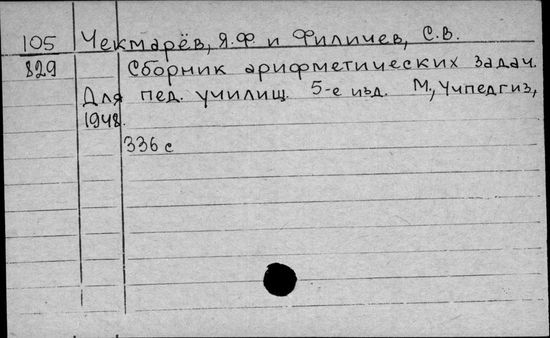 105 Чекмарёв, Я.Ф и Филичев, С.В.
829 Сборник арифметических задач.
Для пед. училищ. 5-е изд. М., Учпедгиз,
1948.
336 с